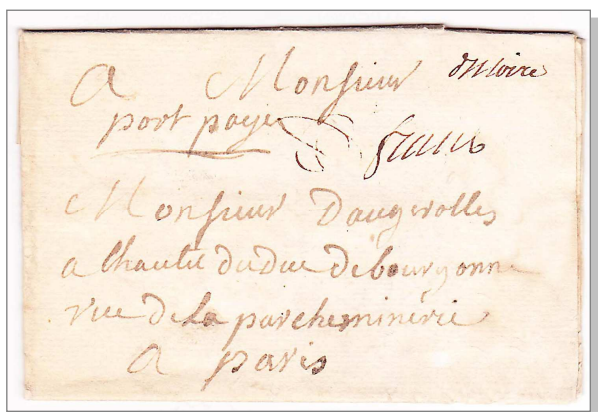 A Monsieur
d'Issoire
port payé
franc
Monsieur Daugerolles
a lhautel du duc de bourgonne
rue de la parcheminérie
a paris